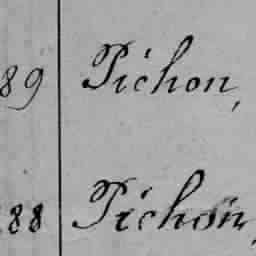 89 Pichon,
88 Pichon,